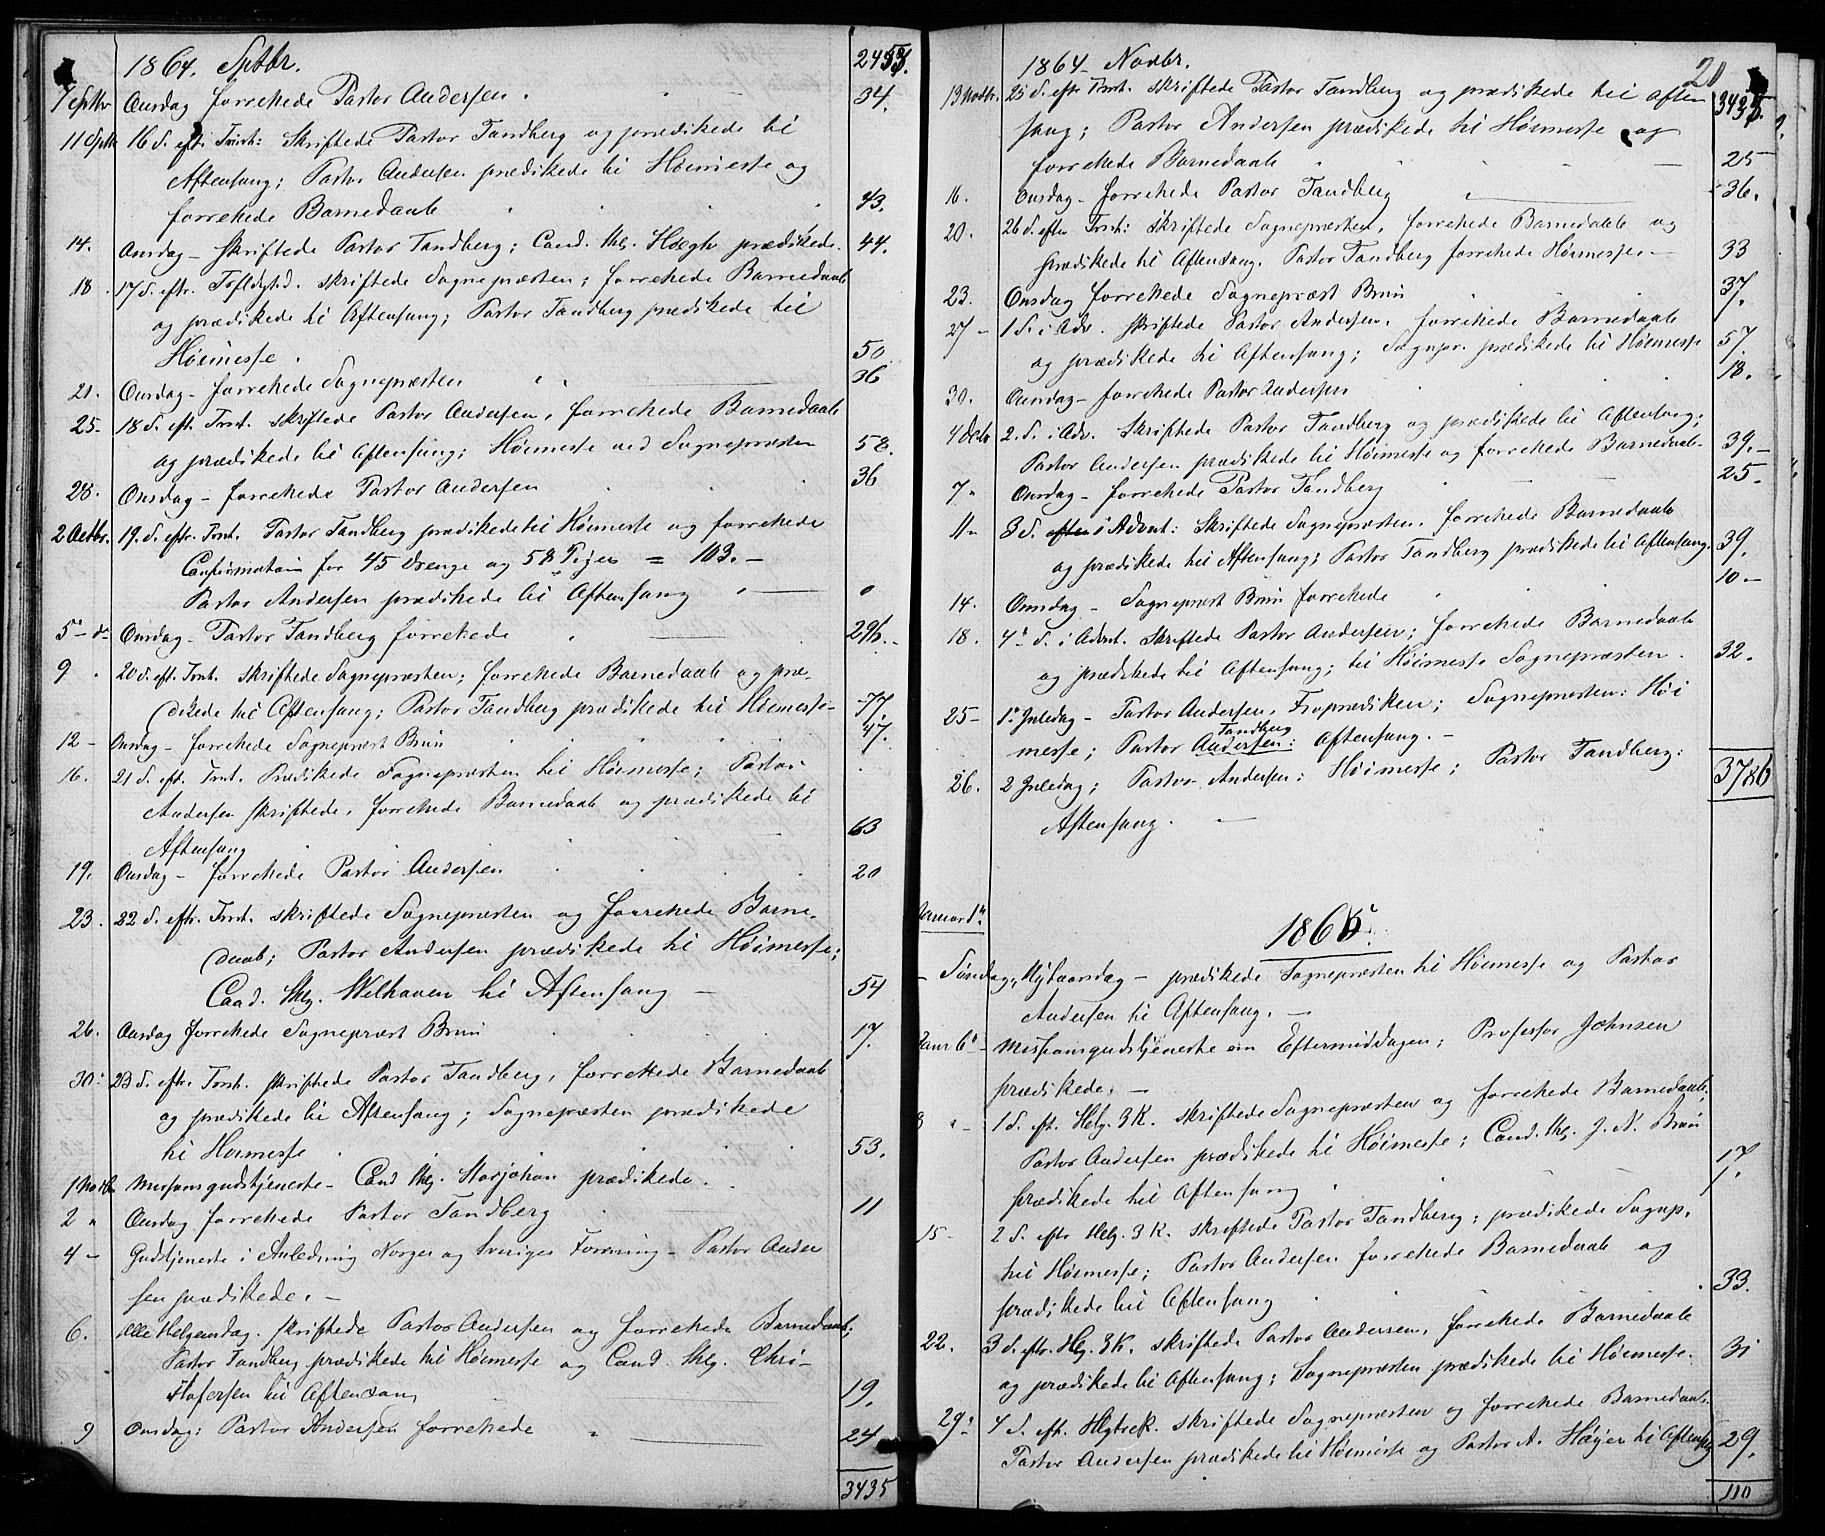 1864. Septbr. 2453.
7 Septbr Onsdag forrettede Pastor Andersen. 34.
11 Septb 16 S. eft. Trinit: Skriftede Pastor Tandberg og prædikede til
Aftensang; Pastor Andersen prædikede til Høimesse og
forrettede Barnedaab 43.
14. Onsdag – skriftede Pastor Tandberg; Cand. thlg. Høegh prædikede. 44.
18. 17 S. eftr. Trefldghd. skriftede Sognepræsten; forrettede Barnedaab
og prædikede til Aftensang; Pastor Tandberg prædikede til
Høimesse. 50
21. Onsdag – forrettede Sognepræsten 36
25 – 18 S. eft. Trnt. skriftede Pastor Andersen, forrettede Barnedaab
og prædikede til Aftensang; Høimesse ved Sognepræsten 58.
28. Onsdag – forrettede Pastor Andersen 36
2 Octbr. 19. S. eftr. Trnt. Pastor Tandberg prædikede til Høimesse og forrettede
Confirmation for 45 Drenge og 58 Piger = 103. –
Pastor Andersen prædikede til Aftensang 0
5 – d– Onsdag – Pastor Tandberg forrettede 296. –
9 20 S. eft. Trnt. skriftede Sognepræsten; forrettede Barnedaab og præ-
dikede til Aftensang; Pastor Tandberg prædikede til Høimesse – 77
12 – Onsdag – forrettede Sognepræst Brun 47.
16. 21 S. eft. Trnt. Prædikede Sognepræsten til Høimesse; Pastor
Andersen skriftede, forrettede Barnedaab og prædikede til
Aftensang 63
19. Onsdag – forrettede Pastor Andersen 20
23. 22 S. eftr. Trnt. skriftede Sognepræsten og forrettede Barne-
daab; Pastor Andersen prædikede til Høimesse;
Cand. thlg. Welhaven til Aftensang – 54
26. Onsdag forrettede Sognepræst Brun 17.
30. 23 S. eftr. Trnt. skriftede Pastor Tandberg, forrettede Barnedaab
og prædikede til Aftensang; Sognepræsten prædikede
til Høimesse 53.
1 Novbr Missionsgudstjeneste – Cand thlg. Storjohan prædikede.
2 " Onsdag forrettede Pastor Tandberg 11
4 – Gudstjeneste i Anledning Norges og Sveriges Forening – Pastor Ander
sen prædikede. –
6. Alle Helgensdag. skriftede Pastor Andersen og forrettede Barnedaab;
Pastor Tandberg prædikede til Høimesse og Cand. thlg. Chri-
stofersen til Aftensang 19.
9 Onsdag: Pastor Andersen forrettede " 24
3435

20
1864 – Novbr. 3435.
13 Novbr. 25 S. eftr Trnt. skriftede Pastor Tandberg og prædikede til Aften
sang; Pastor Andersen prædikede til Høimesse og
forrettede Barnedaab 25
16. Onsdag – forrettede Pastor Tandberg 36.
20. 26 S. eftr Trnt: skriftede Sognepræsten, forrettede Barnedaab og
prædikede til Aftensang. Pastor Tandberg forrettede Høimesse – 33
23. Onsdag forrettede Sognepræst Brun 37.
27 – 1 S. i Adv. skriftede Pastor Andersen, forrettede Barnedaab
og prædikede til Aftensang; Sognepr. prædikede til Høimesse 57.
30. Onsdag – forrettede Pastor Andersen 18.
4 Decbr 2. S. i Adv. Skriftede Pastor Tandberg og prædikede til Aftensang;
Pastor Andersen prædikede til Høimesse og forrettede Barnedaab – 39. –
7 " Onsdag – forrettede Pastor Tandberg 25.
11 " 3 S. efter i Advnt: Skriftede Sognepræsten, forrettede Barnedaab
og prædikede til Aftensang; Pastor Tandberg prædikede til Aftensang. 39.
14. Onsdag – Sognepræst Brun forrettede 10 –
18. 4d. S. i Advnt. Skriftede Pastor Andersen; forrettede Barnedaab
og prædikede til Aftensang; til Høimesse Sognepræsten. 32.
25 – 1s. Juledag – Pastor Andersen, Froprædiken; Sognepræsten: Høi
messe; Pastor Andersen: Tandberg Aftensang. –
26. 2 Juledag; Pastor Andersen: Høimesse; Pastor Tandberg:
Aftensang. 3786
1865.
Januar 1st.
– Søndag, Nytaarsdag – prædikede Sognepræsten til Høimesse og Pastor
Andersen til Aftensang. –
Janr 6 – Missionsgudstjeneste om Eftermiddagen; Professor Johnsen
prædikede. –
8 " – 1 S. eft. Helg. 3 K. skriftede Sognepræsten og forrettede Barnedaab;
Pastor Andersen prædikede til Høimesse; Cand. thlg. J. N. Brun
prædikede til Aftensang 17.
15 – 2 S. eftr Helg. 3 K. skriftede Pastor Tandberg; prædikede Sognp.
til Høimesse; Pastor Andersen forrettede Barnedaab og
prædikede til Aftensang 33.
22. 3 S. eftr. Hlg. 3 K. skriftede Pastor Andersen, forrettede Barnedaab
og prædikede til Aftensang; Sognepræsten prædikede til Høimesse. 31
29. 4 S. eft. Hlgtrek. skriftede Sognepræsten og forrettede Barnedaab.
Pastor Andersen prædikede til Høimesse og Pastor A. Høyer til Aftensg 29.
110